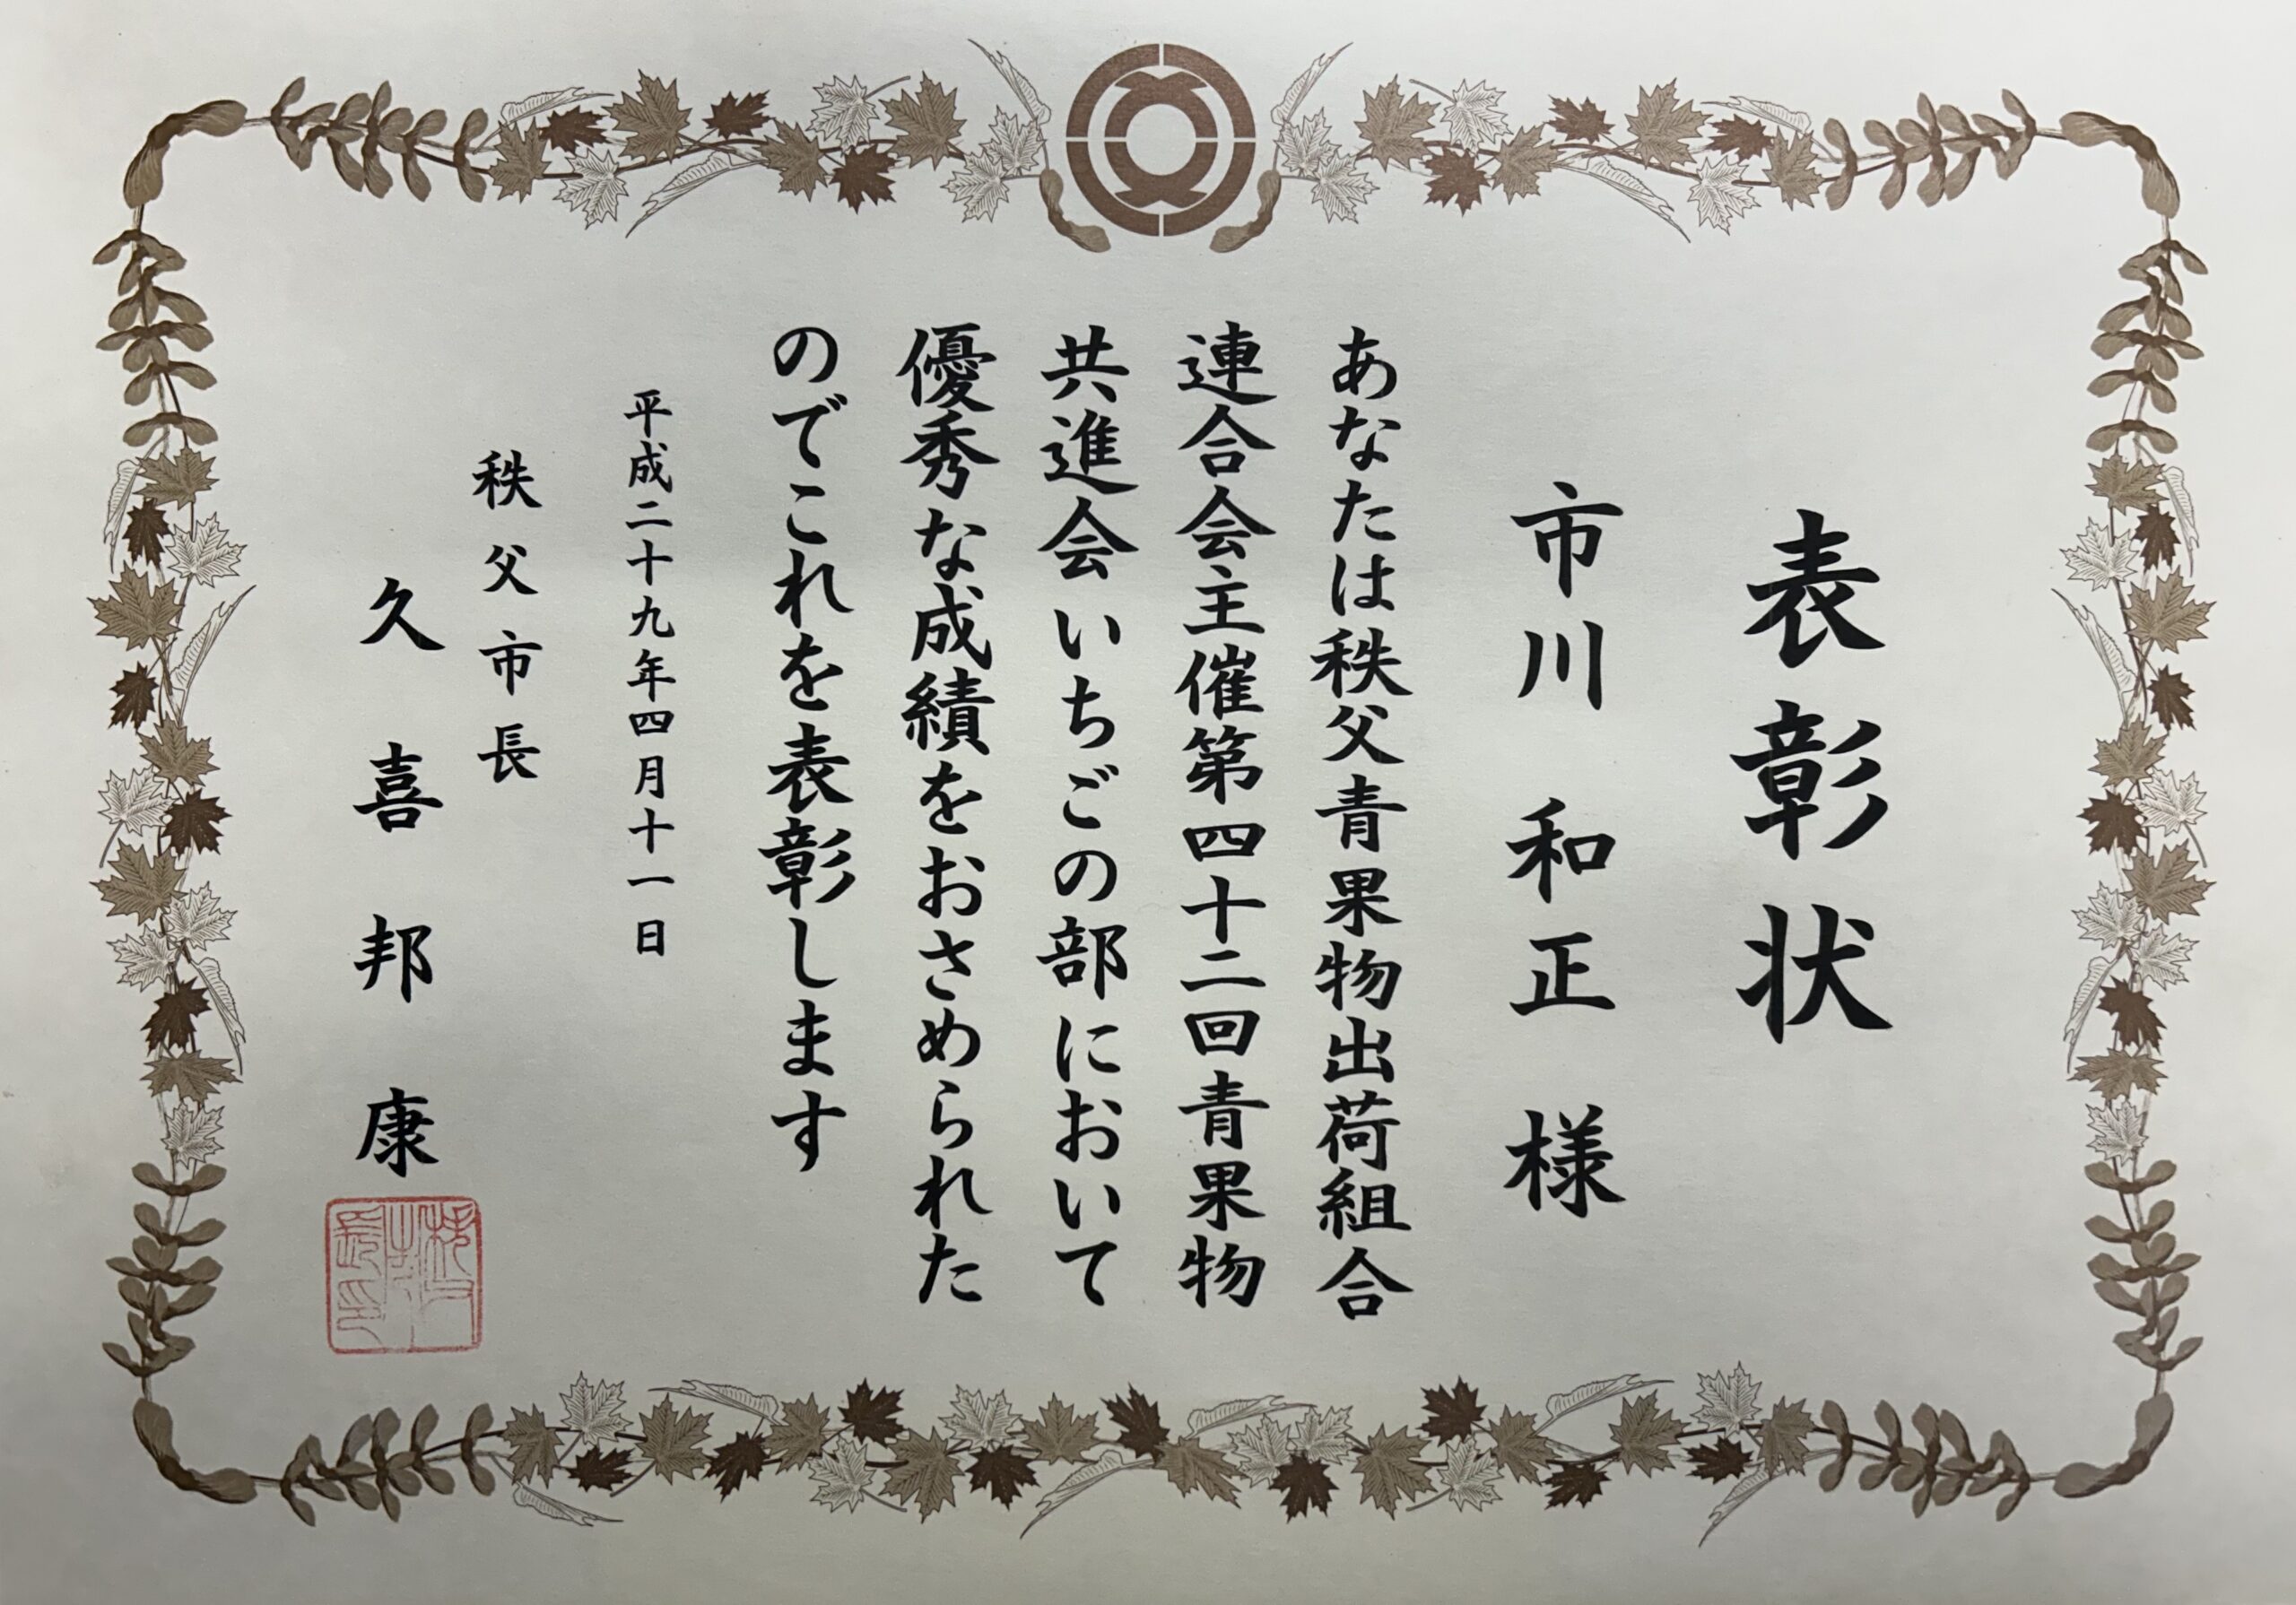 表彰状
市川 和正 様
あなたは秩父青果物出荷組合
連合会主催第四十二回青果物
共進会いちごの部において
優秀な成績をおさめられた
のでこれを表彰します
平成二十九年四月十一日
秩父市長
久喜邦康
秩父市長印